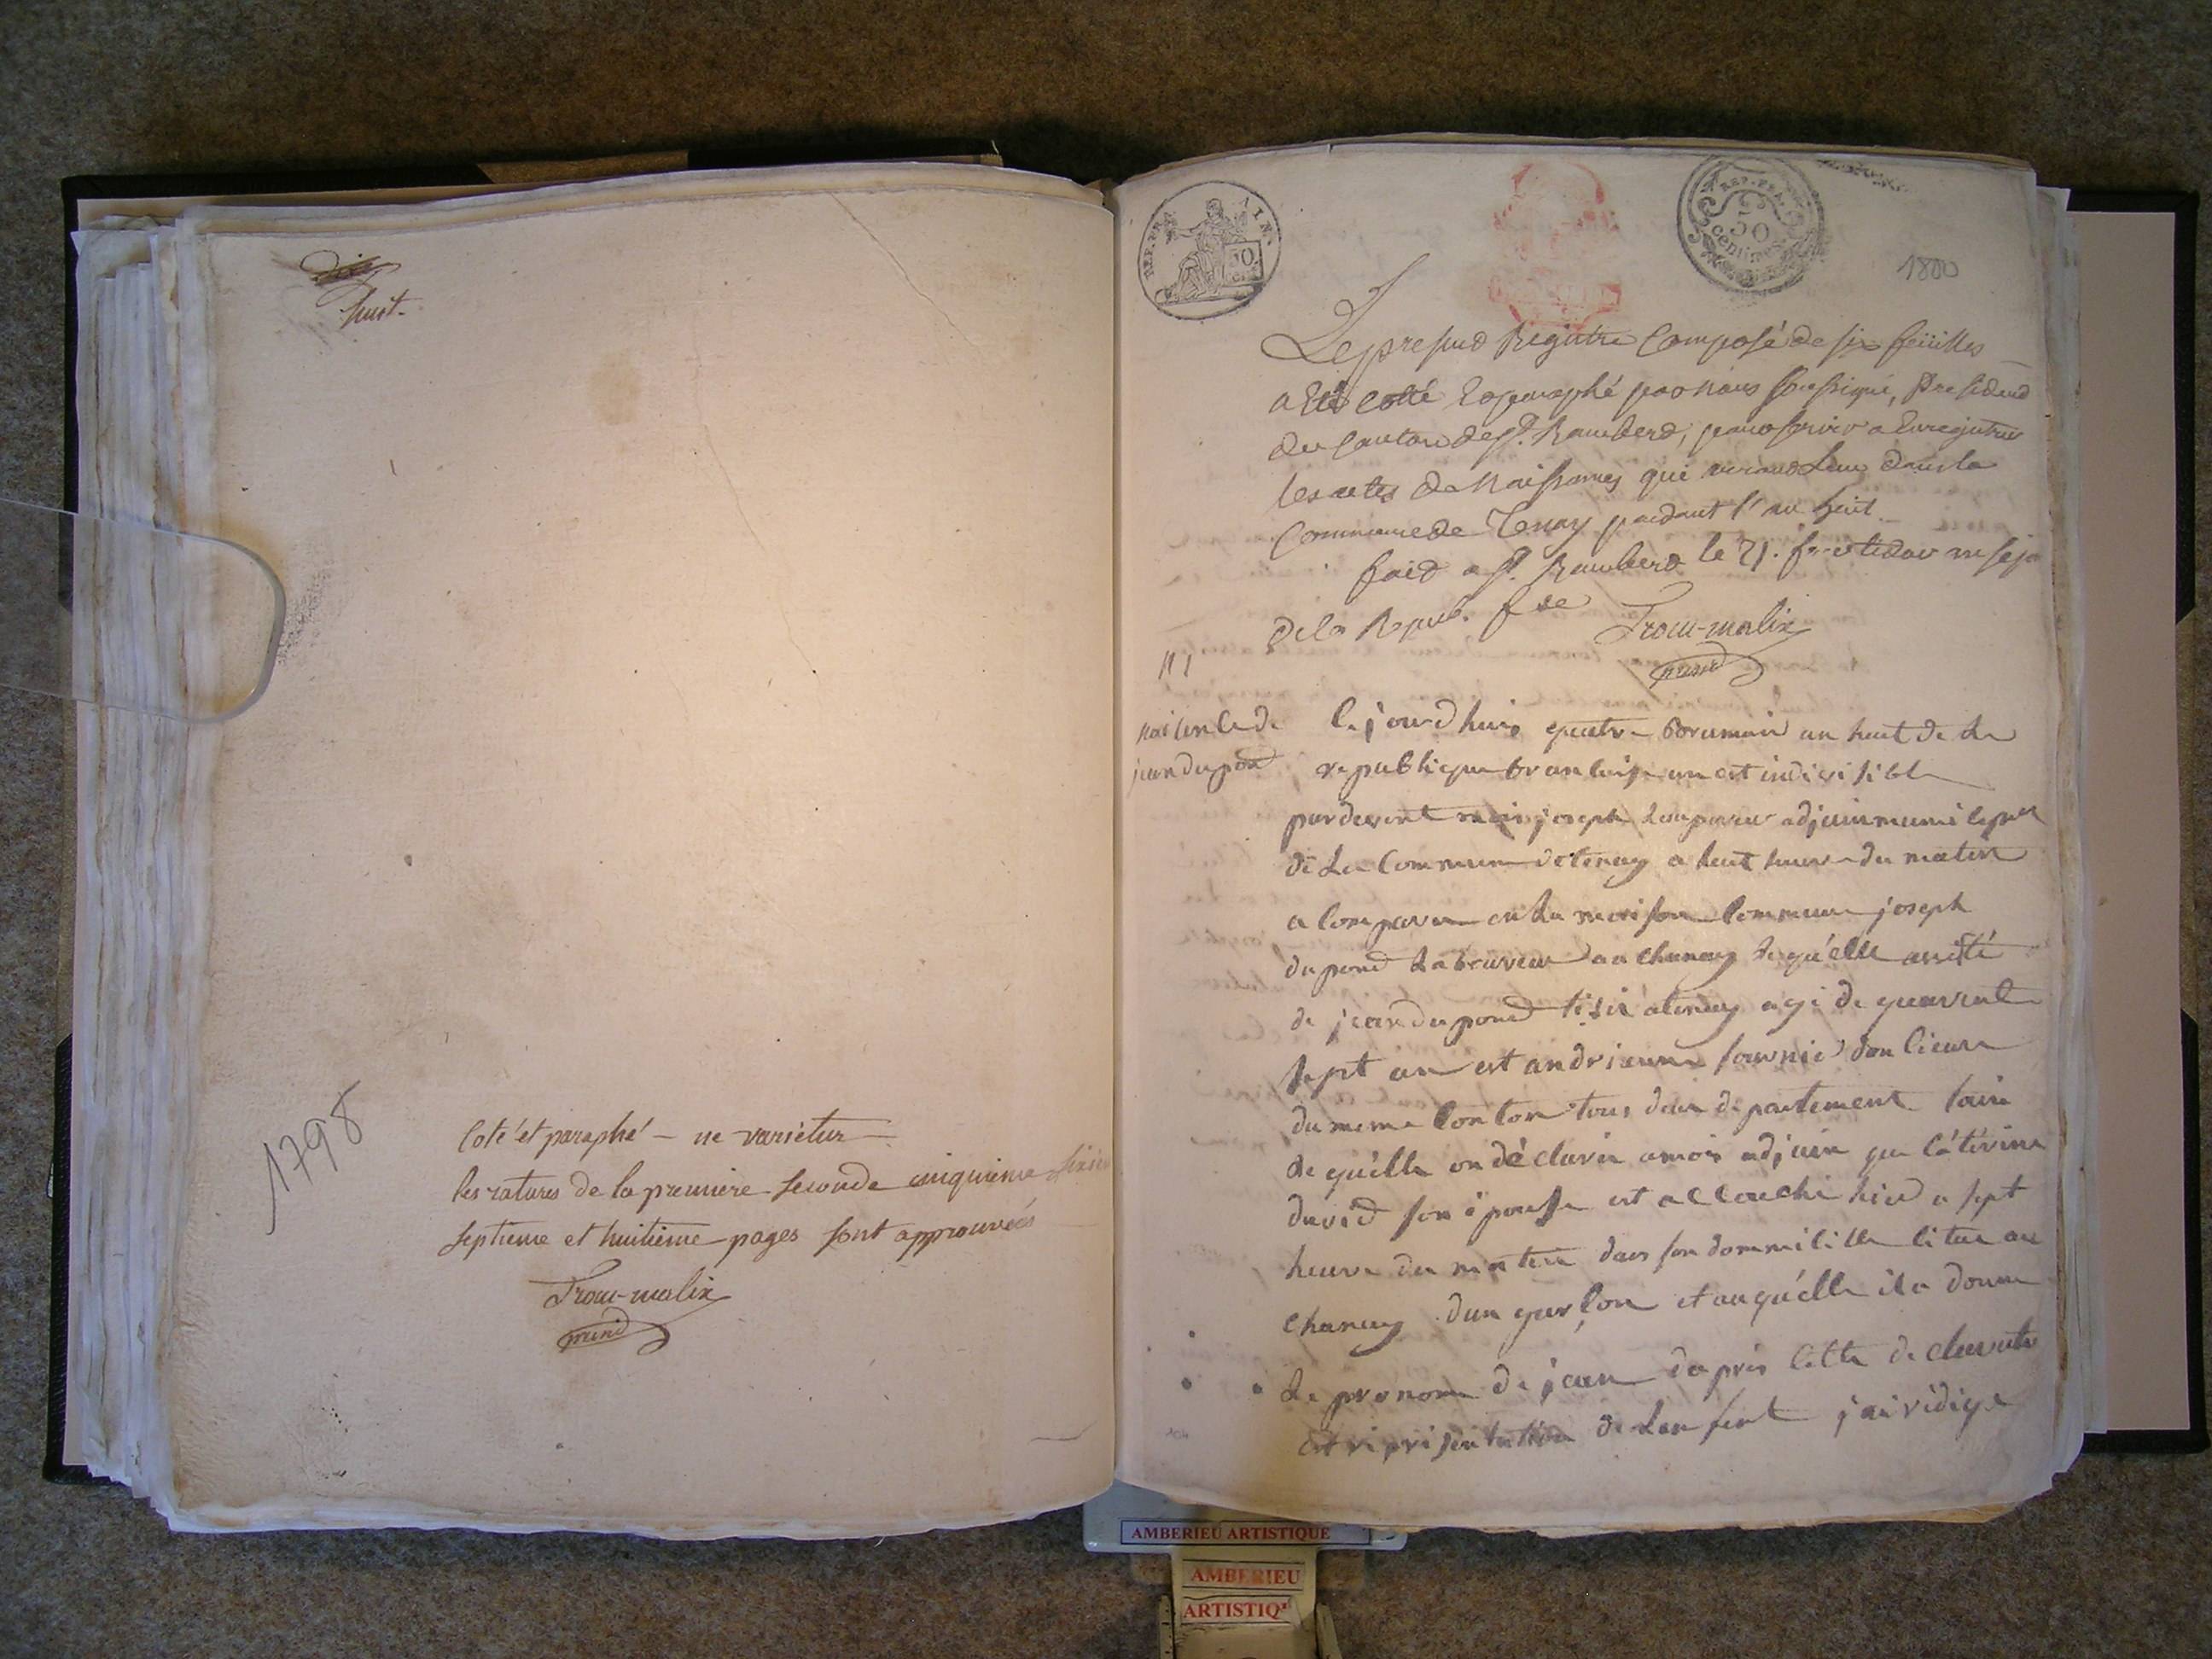 dix
huit.
1798
Coté et paraphé - ne varietur
les ratures de la premiere seconde cinquieme sixieme
septieme et huitieme pages sont approuvées
Trocu-molix
presid
REP. FRA. AIN.
50
REP. FRA.
50
centimes
1800
Le present Registre Composé de six feüilles
a Eté cotté & paraphé par Nous soussigné, President
du Canton de St. Rambert, pour servir a Enregistrer
les actes de Naissances qui auront Lieu dans la
Commune de Tenay pendant l'an huit.
fait a St. Rambert le 21. fructidor an sept
de la Repub. fse
Trocu-molix
presid
N 1
naisence de
jean dupond
Ce jourd huis quatre brumair an huit de la
republique francaise une est indivisible
pardevent moi joseph adjuin municipal
de La Commune de tenay a huit heure du matin
a comparu en La maison Commune joseph
dupond Laboureur au chanay lequelle assité
de jean dupond tisié a tenay agé de quarente
sept an est andrienne fournié don lieure
du meme Conton tous deu departement
lequelle on déclaré a moi adjuin que Cátérine
david son épouse est accouché hier a sept
heure du matin dans son dommicille citué au
chanay dun garçon et auquélle il a donné
Le pronom de jean daprés cette declaration
est réprésentation de Lenfent jai rédigé
AMBERIEU ARTISTIQUE
AMBERIEU
ARTISTIQ